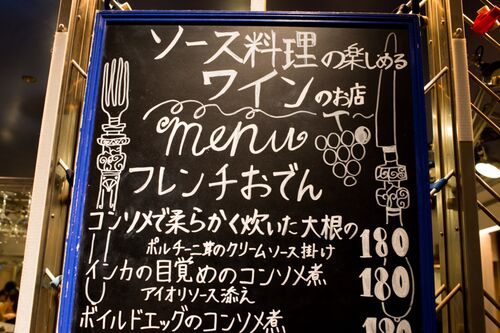 ソース料理の楽しめる
ワインのお店
menu
フレンチおでん
コンソメで柔らかく炊いた大根の 180
ポルチーニ茸のクリームソース掛け
インカの目覚めのコンソメ煮 180
アイオリソース添え
ボイルドエッグのコンソメ煮